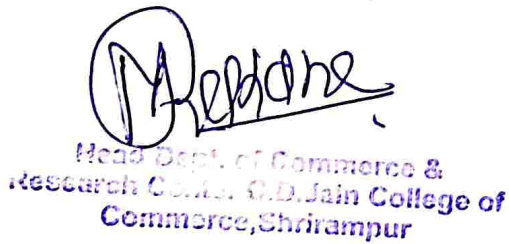 Head Dept. of Commerce &
Research C.D.Jain College of
Commerce,Shrirampur